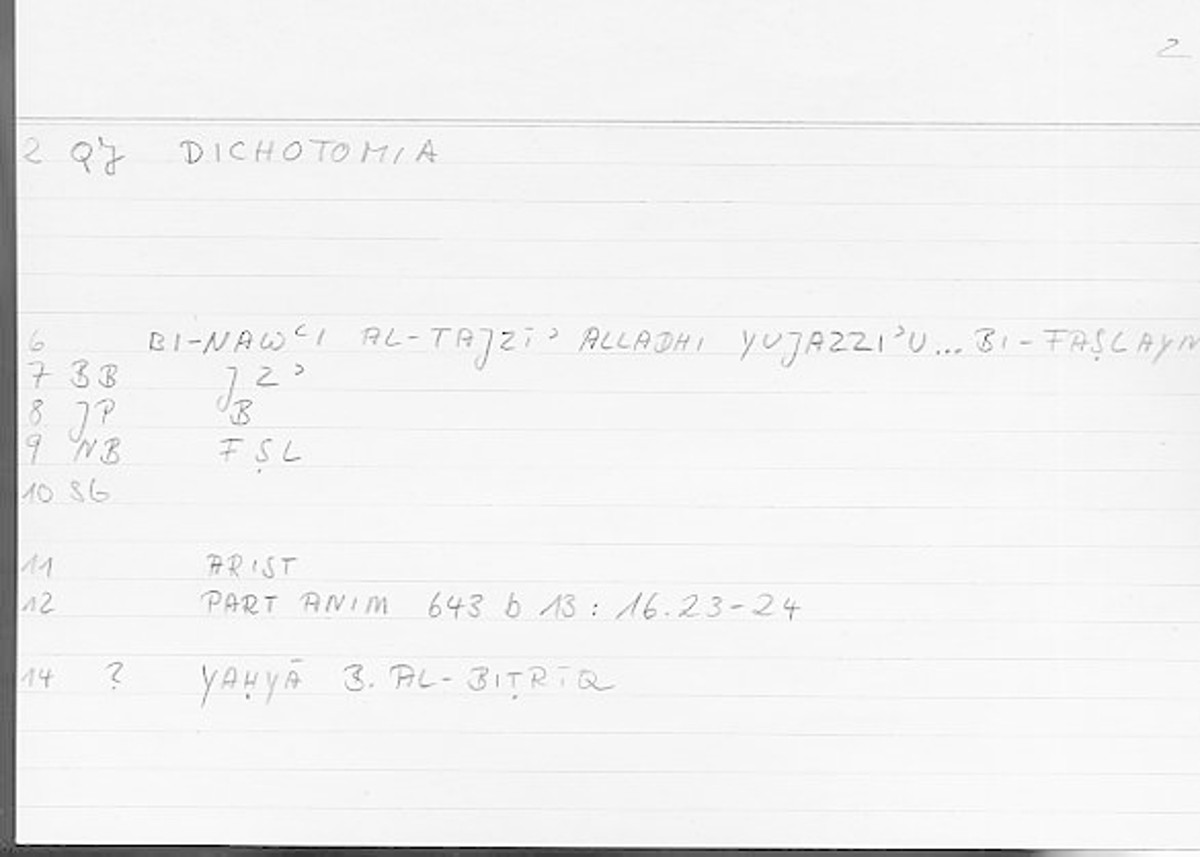 2
2 QJ DICHOTOMIA
6 BI-NAWʿI AL-TAJZĪʾ ALLADHI YUJAZZIʾU... BI-FAṢLAYN
7 BB JZʾ
8 JP B
9 NB FṢL
10 SG
11 ARIST
12 PART ANIM 643 b 13 : 16.23-24
14 ? YAḤYĀ B. AL-BIṬRĪQ